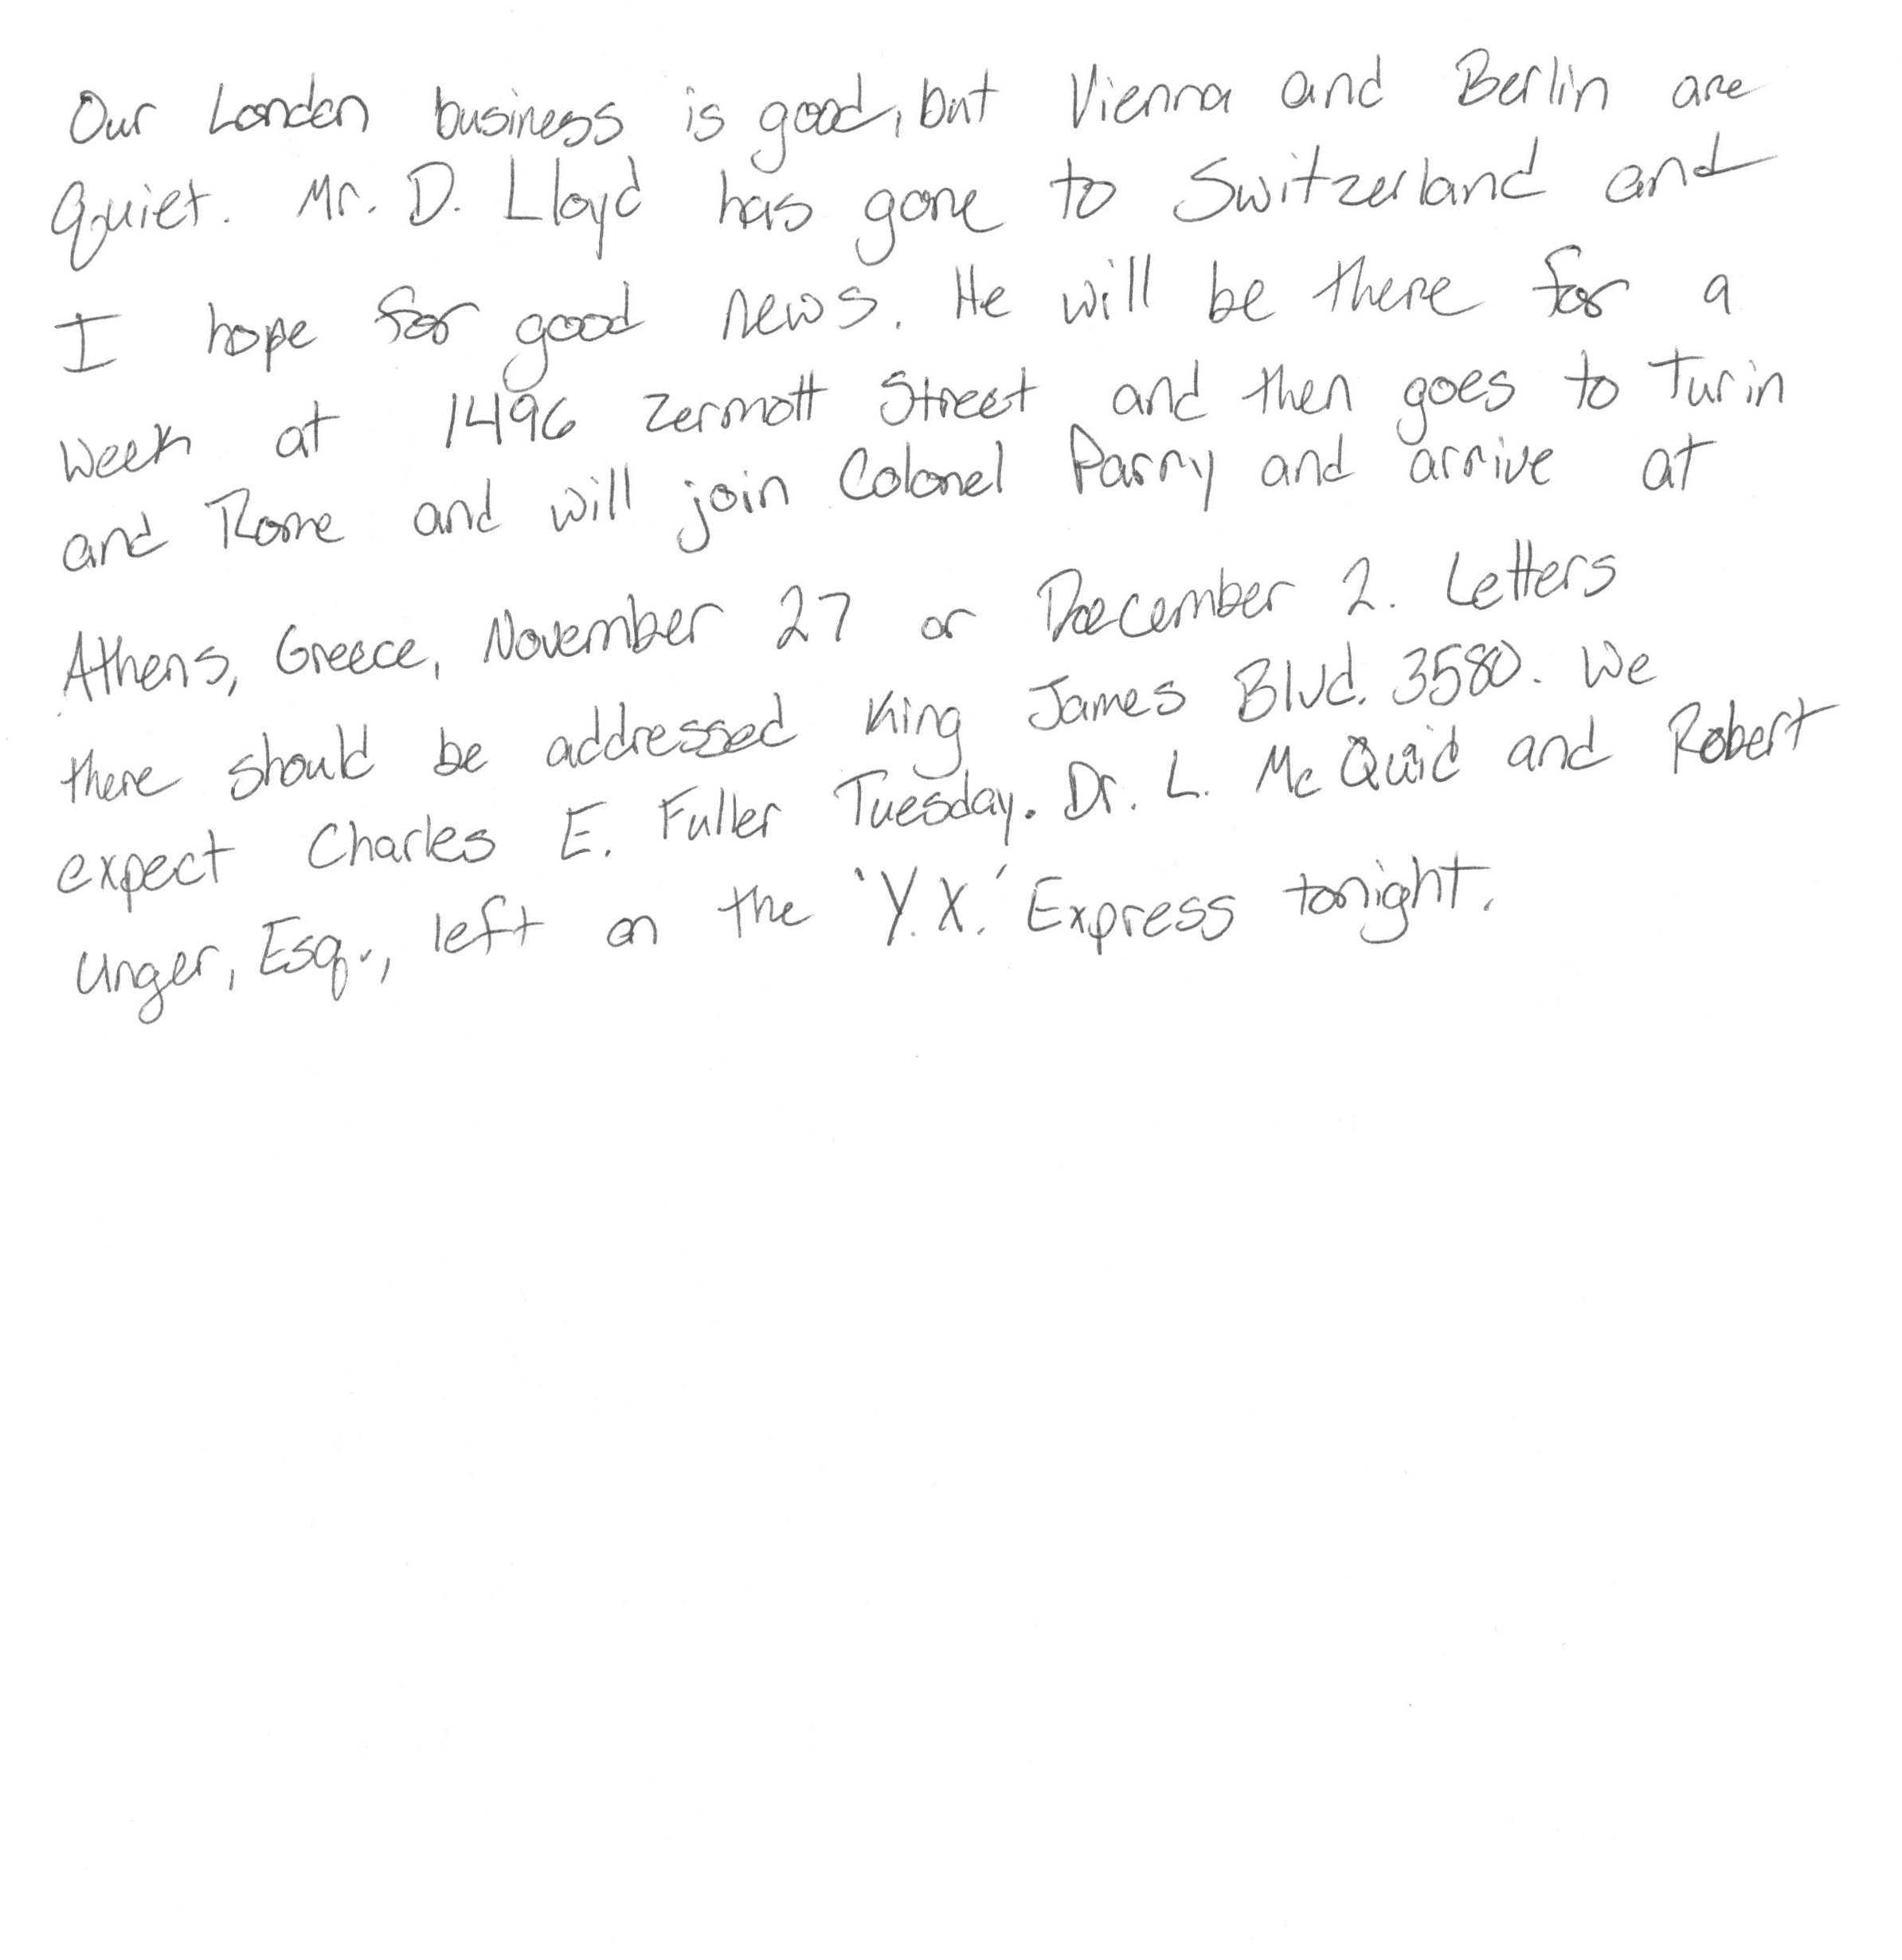 Our London business is good, but Vienna and Berlin are
quiet. Mr. D. Lloyd has gone to Switzerland and
I hope for good news. He will be there for a
week at 1496 Zermott Street and then goes to Turin
and Rome and will join Colonel Parry and arrive at
Athens, Greece, November 27 or December 2. Letters
there should be addressed King James Blvd. 3580. We
expect Charles E. Fuller Tuesday. Dr. L. McQuaid and Robert
Unger, Esq., left on the 'Y.X.' Express tonight.